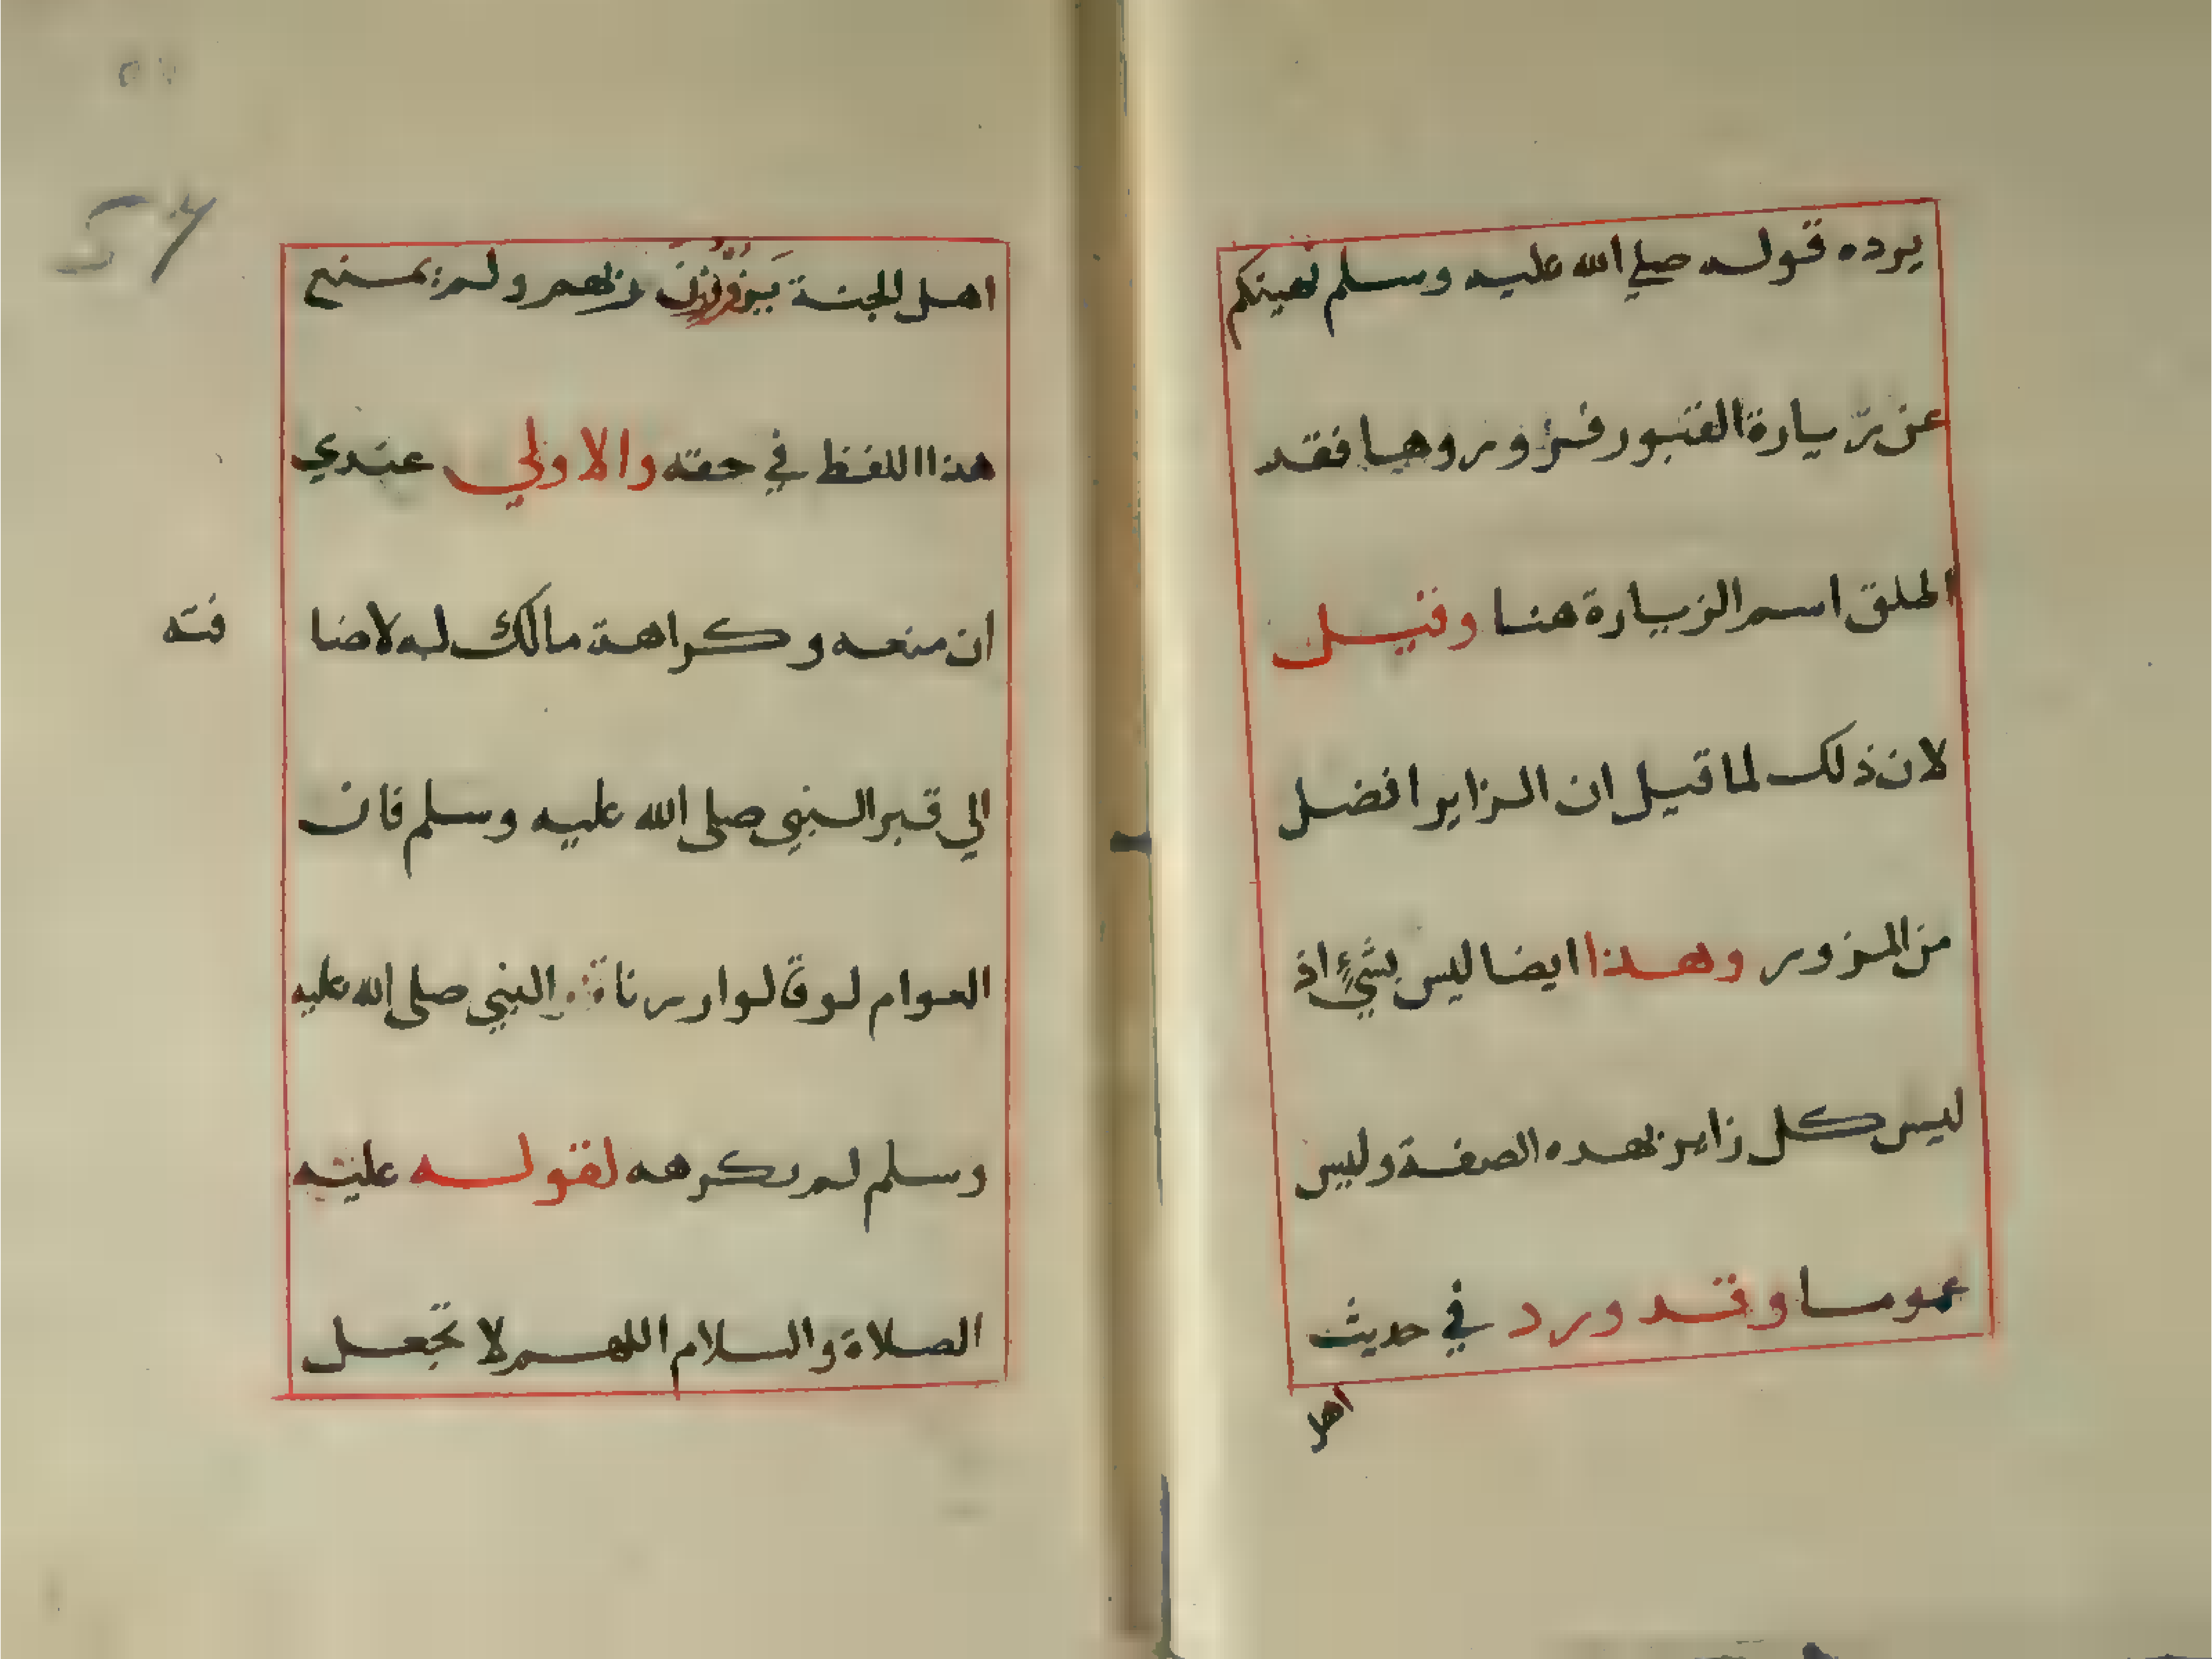 يرده قوله صلي الله عليه وسلم نهيتكم
عن زيارة القبور فزوروها فقد
اطلق اسم الزيارة هنا وقيل
لان ذلك لما قيل ان الزاير افضل
من المزور وهذا ايضا ليس بشيء اذ
ليس كل زاير بهده الصفة وليس
عموما وقد ورد في حديث
اهل
57
اهل الجنة يزورون ربهم ولم يمنع
هذا اللفظ في حقه والاولي عندي
ان منعه وكراهة مالك له لاضا فته
الي قبر النبي صلى الله عليه وسلم فان
العوام لو قالوا زرنا النبي صلى الله عليه
وسلم لم يكرهه لقوله عليه
الصلاة والسلام اللهم لا تجعل